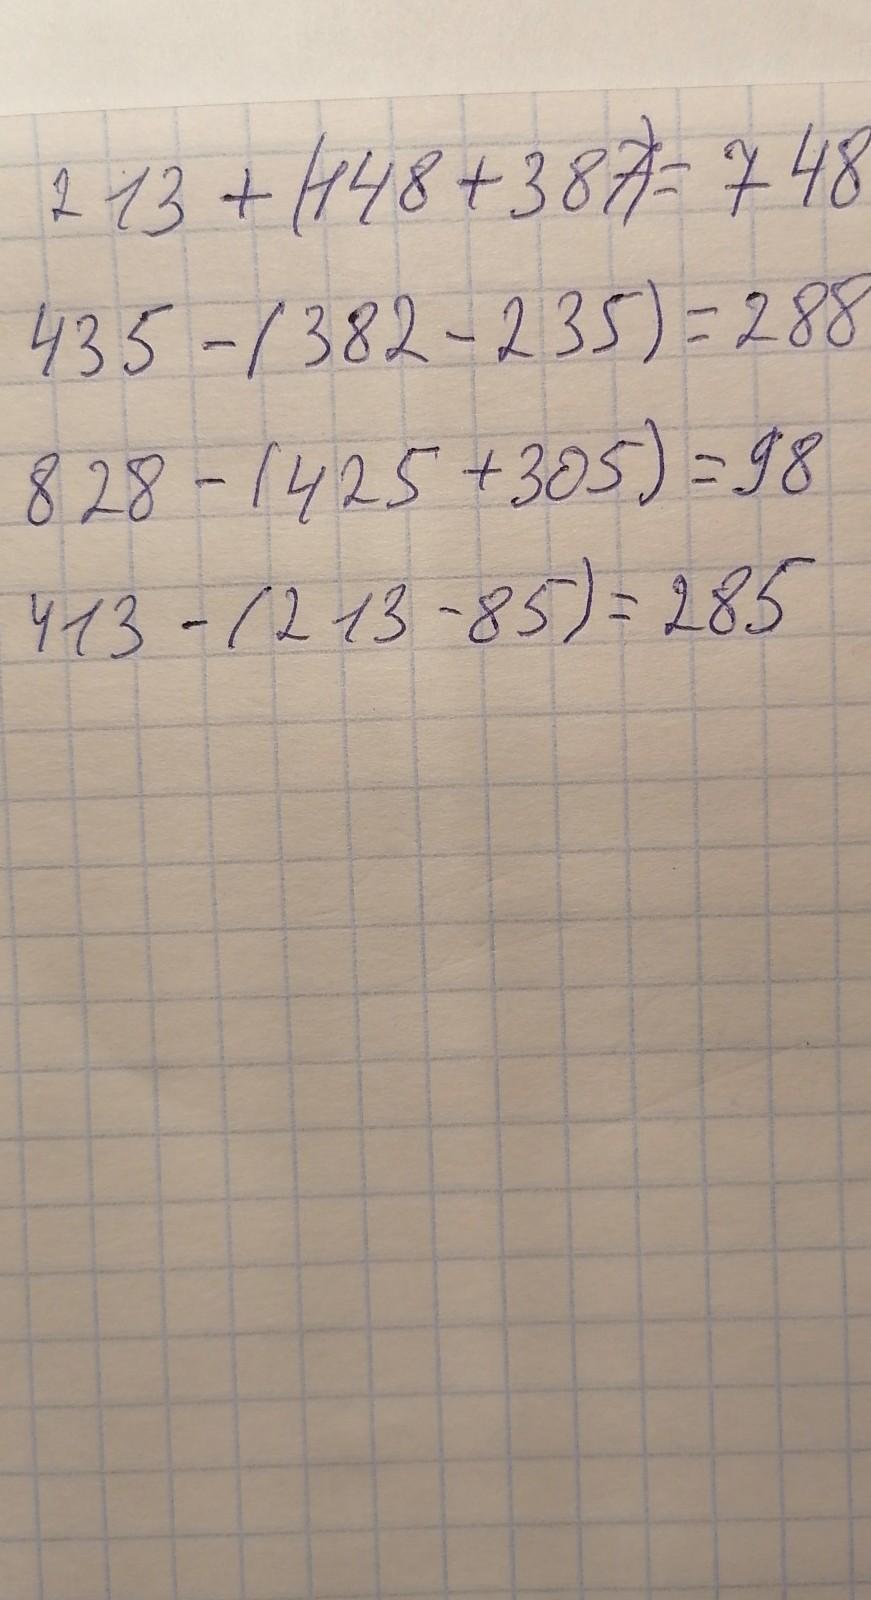 213 + (148 + 387) = 748
435 - (382 - 235) = 288
828 - (425 + 305) = 98
413 - (213 - 85) = 285